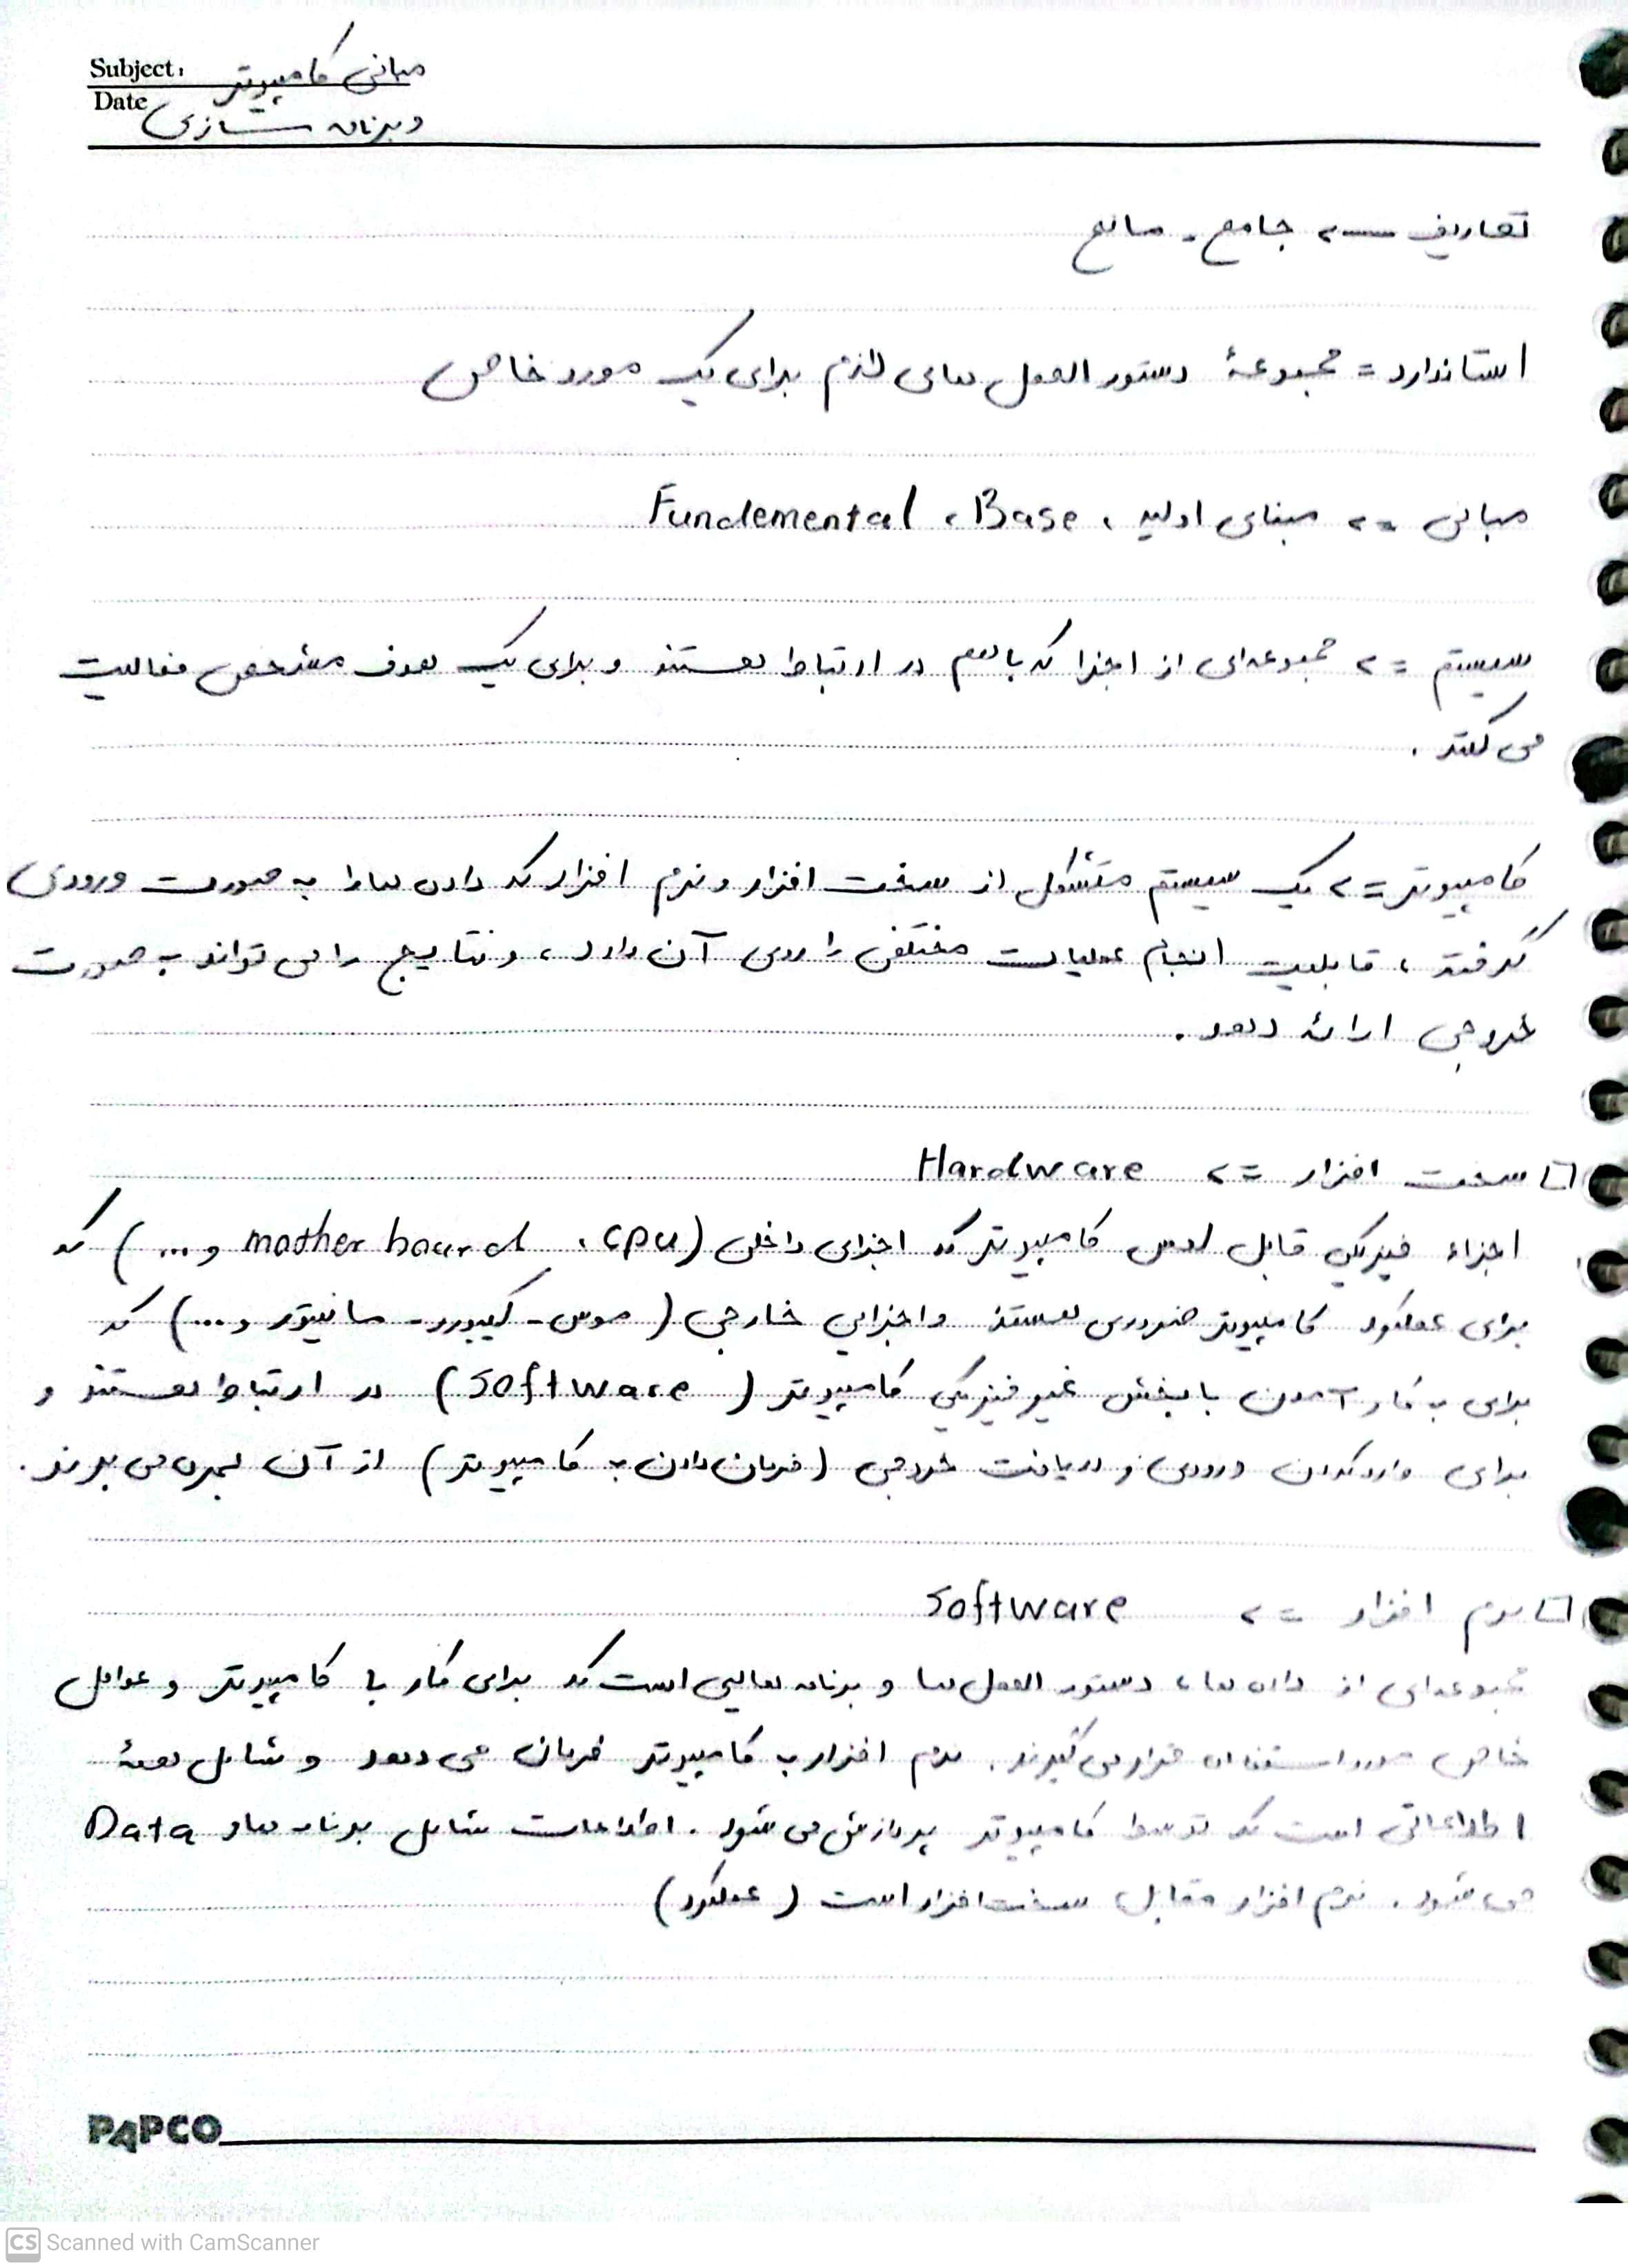 Subject: مبانی کامپیوتر
Date و برنامه سازی
تعاریف ← جامع - مانع
استاندارد = مجموعهٔ دستورالعمل های لازم برای یک مورد خاص
مبانی => مبنای اولیه ، Base ، Fundemental
سیستم => مجموعه‌ای از اجزا که باهم در ارتباط هستند و برای یک هدف مشخص فعالیت
می کنند .
کامپیوتر => یک سیستم متشکل از سخت افزار و نرم افزار که داده ها را به صورت ورودی
گرفته ، قابلیت انجام عملیات مختلفی را روی آن دارد ، و نتایج را می تواند به صورت
خروجی ارائه دهد .
□ سخت افزار => Hardware
اجزاء فیزیکی قابل لمس کامپیوتر که اجزای داخلی (cpu ، mother board و ...) که
برای عملکرد کامپیوتر ضروری هستند و اجزایی خارجی ( موس - کیبورد - مانیتور و ...) که
برای به کار آمدن با بخش غیر فیزیکی کامپیوتر ( Software ) در ارتباط هستند و
برای وارد کردن ورودی و دریافت خروجی (فرمان دادن به کامپیوتر) از آن بهره می برند .
□ نرم افزار => Software
مجموعه‌ای از داده ها ، دستور العمل ها و برنامه هایی است که برای کار با کامپیوتر و عوامل
خاص مورد استفاده قرار می گیرند . نرم افزار به کامپیوتر فرمان می دهد و شامل همهٔ
اطلاعاتی است که توسط کامپیوتر پردازش می شود . اطلاعات شامل برنامه ها و Data
می شود . نرم افزار مقابل سخت افزار است ( عملکرد )
PAPCO
CS Scanned with CamScanner